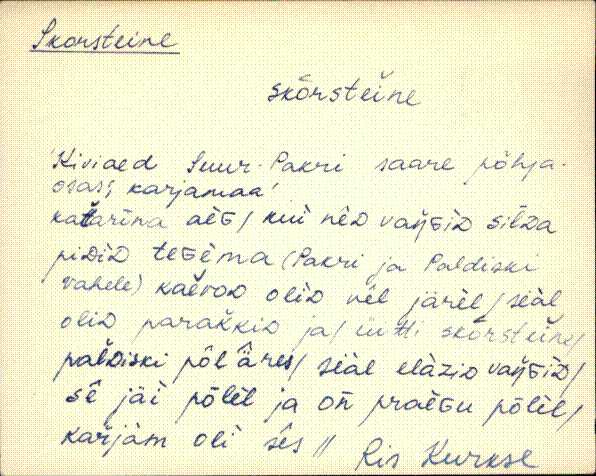 Skorsteine
skōrsteǐne
'Kiviaed Suur-Pakri saare põhja-
osas, karjamaa'
katarīna aèG/ kui nèD vaŋGiD silda
piDiD teGèma (Pakri ja Paldiski
vahele) kaěvoD oliD vêl järèl/ sèàl
oliD parakkiD ja/ ütti skōrsteǐne/
palDiski põl ǟres/ sèàl elàziD vaŋGiD/
sê jäi põlèl ja on praèGu põlèl/
karjàm oli sēs // Ris Kurkse